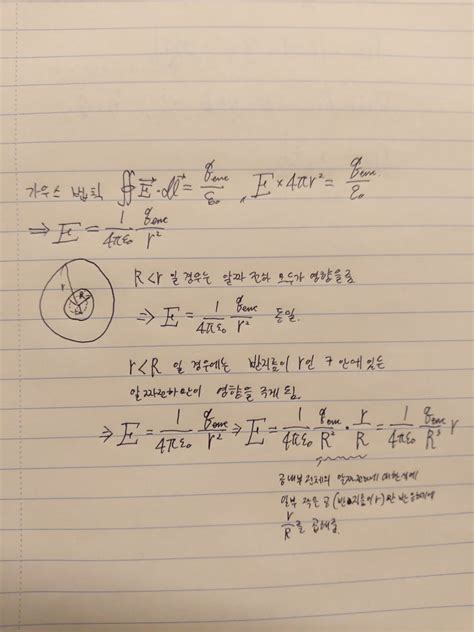 가우스 법칙 ∯ E→ · dl→ = q_enc/ε₀, E × 4πr² = q_enc/ε₀
⇒ E = 1/4πε₀ q_enc/r²
R r
R<r 일 경우는 알짜 전하 모두가 영향을
⇒ E = 1/4πε₀ q_enc/r² 동일.
r<R 일 경우에는 반지름이 r인 구 안에 있는
알짜전하만이 영향을 주게 됨.
⇒ E = 1/4πε₀ q_enc/r² ⇒ E = 1/4πε₀ q_enc/R² · r/R = 1/4πε₀ q_enc/R³ r
공내부 전체의 알짜전하에
일부 작은 공 (반지름이 r)만
r/R 를 곱해줌.